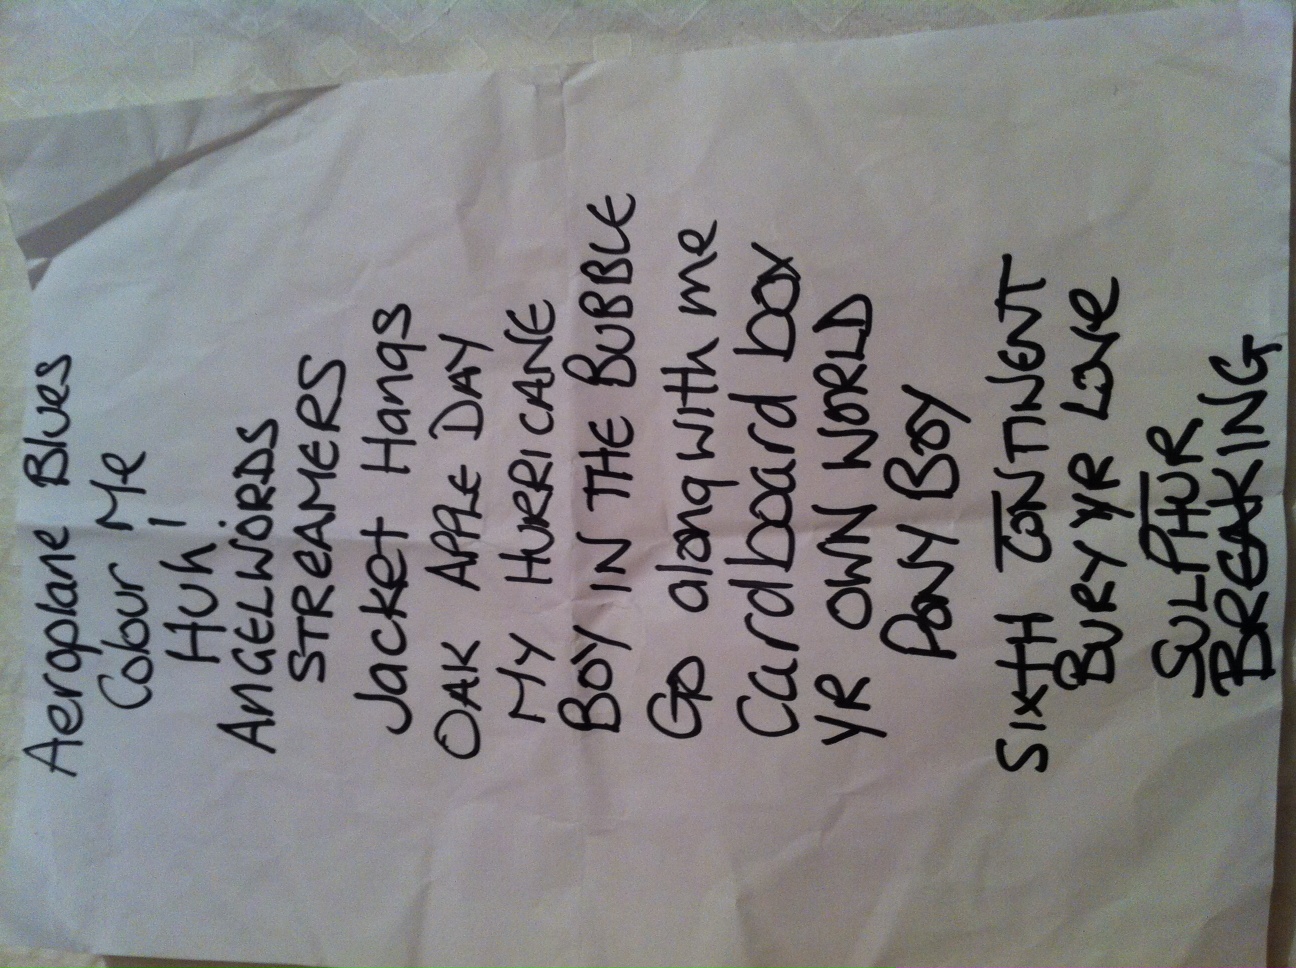 Aeroplane Blues
Colour Me
Huh
ANGELWORDS
STREAMERS
Jacket Hangs
OAK APPLE DAY
MY HURRICANE
BOY IN THE BUBBLE
Go along with me
Cardboard box
YR OWN WORLD
PONY BOY
SIXTH CONTINENT
BURY YR LOVE
SULPHUR
BREAKING